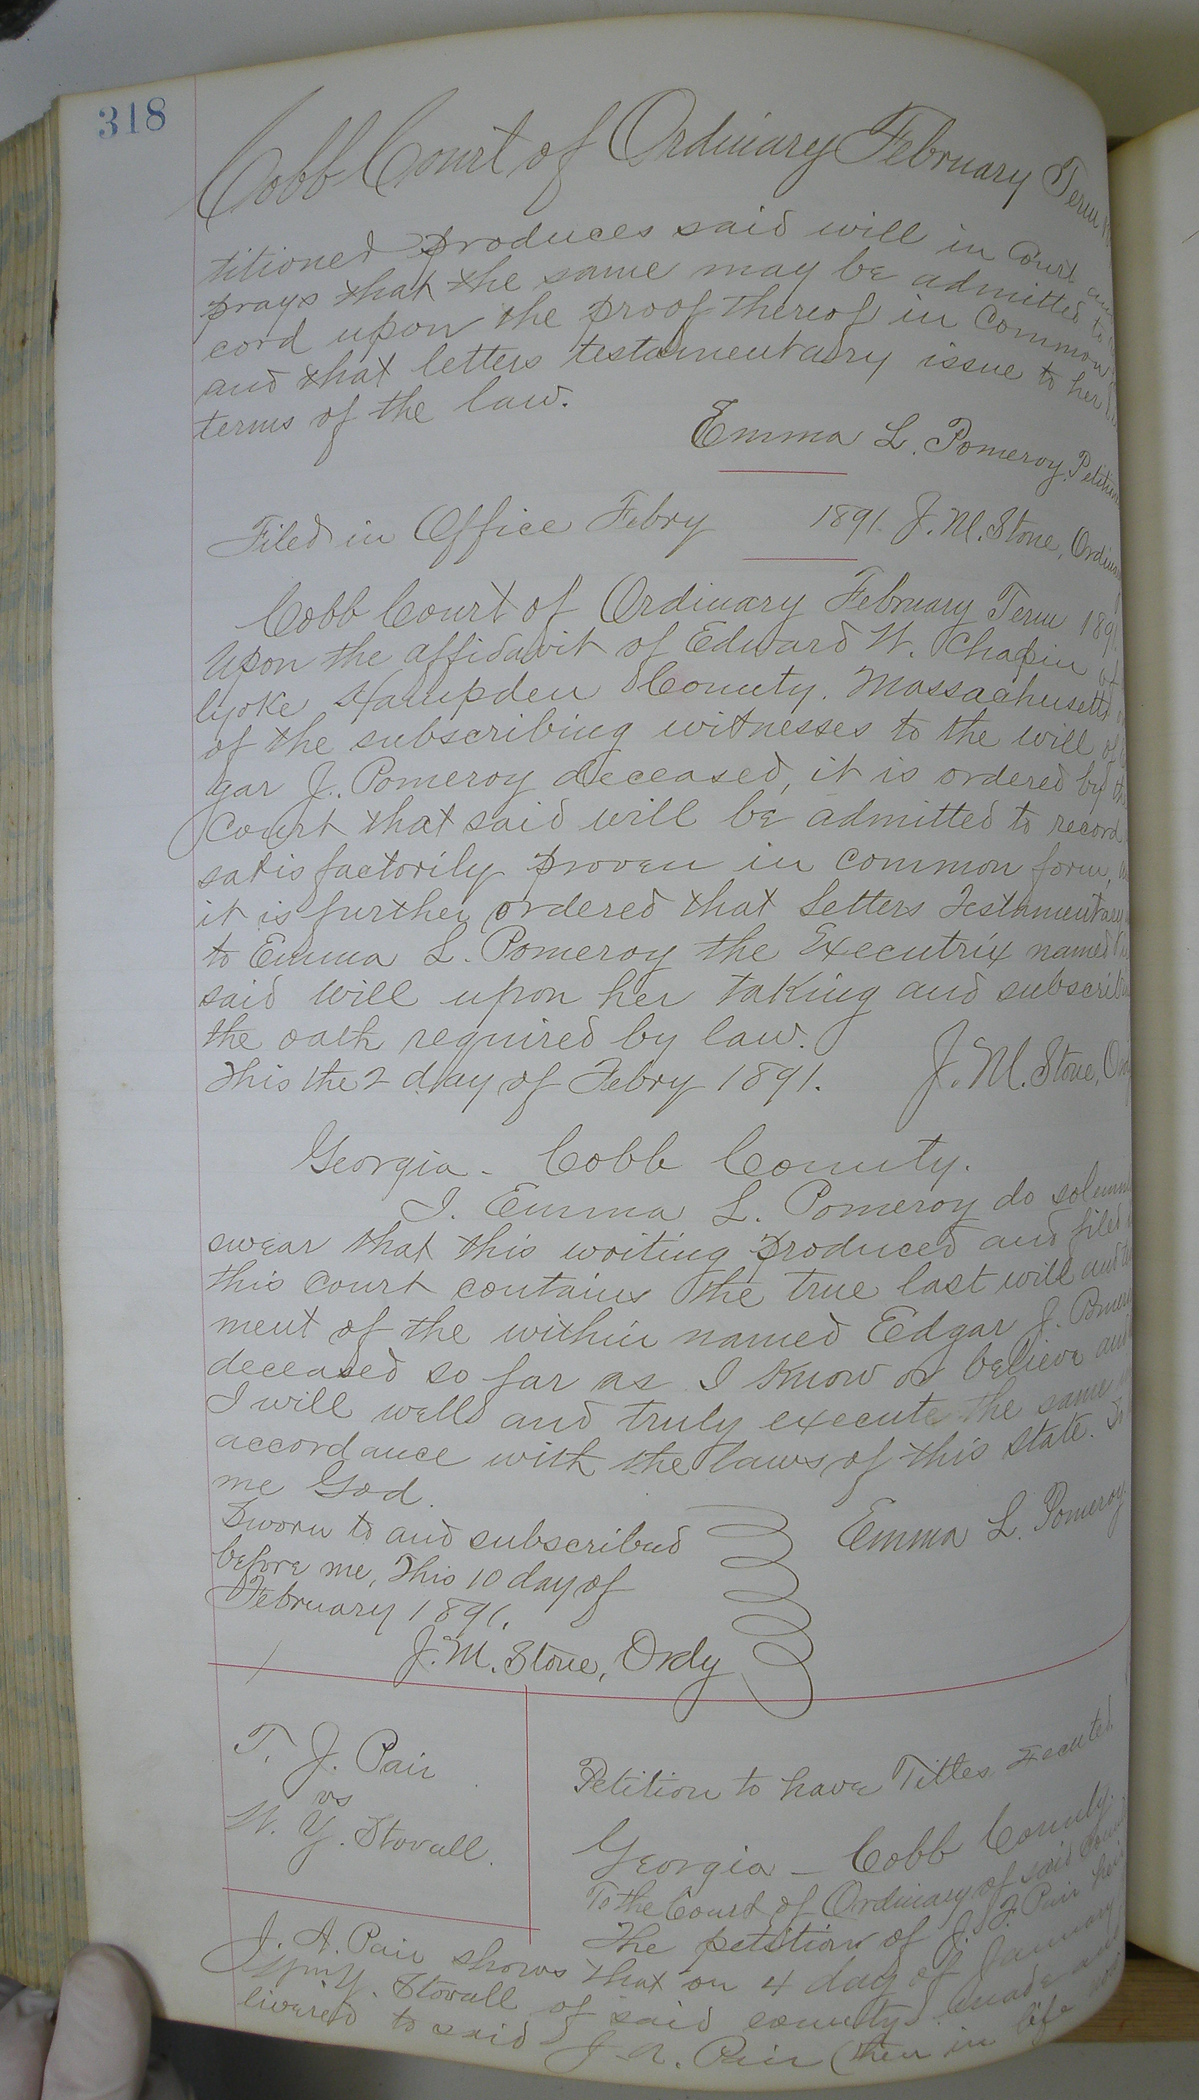 318
Cobb Court of Ordinary February Term
titioned produces said will in Court
prays that the same may be admitted to
cord upon the proof thereof in Common
and that letters testamentary issue to her
terms of the law.
Emma L. Pomeroy, Petition
Filed in Office Febry 1891. J. M. Stone, Ordin
Cobb Court of Ordinary February Term 1891
Upon the affidavit of Edward W. Chapin of
lyoke Hampden County. Massachusetts
of the subscribing witnesses to the will of
gar J. Pomeroy deceased, it is ordered by the
Court that said will be admitted to record
satisfactorily proven in common form,
it is further ordered that Letters Testamentary
to Emma L. Pomeroy the Executrix named
said will upon her taking and subscrib
the oath required by law.
This the 2 day of Febry 1891. J. M. Stone, Ord
Georgia - Cobb County.
I. Emma L. Pomeroy do solemn
swear that this writing produced and filed
this court contains the true last will and
ment of the within named Edgar J. Pomer
deceased so far as I know or believe and
I will well and truly execute the same
accordance with the laws of this state. So
me God.
Emma L. Pomeroy
Sworn to and subscribed
before me, This 10 day of
February 1891.
J. M. Stone, Ordy
T. J. Pair
vs
W. Y. Stovall.
Petition to have Titles Executed
Georgia – Cobb County.
To the Court of Ordinary of said
The petition of J. F. Pair
J. A. Pair shows that on 4 day of January
Stovall of said county made and
livered to said J. A. Pair (then in life